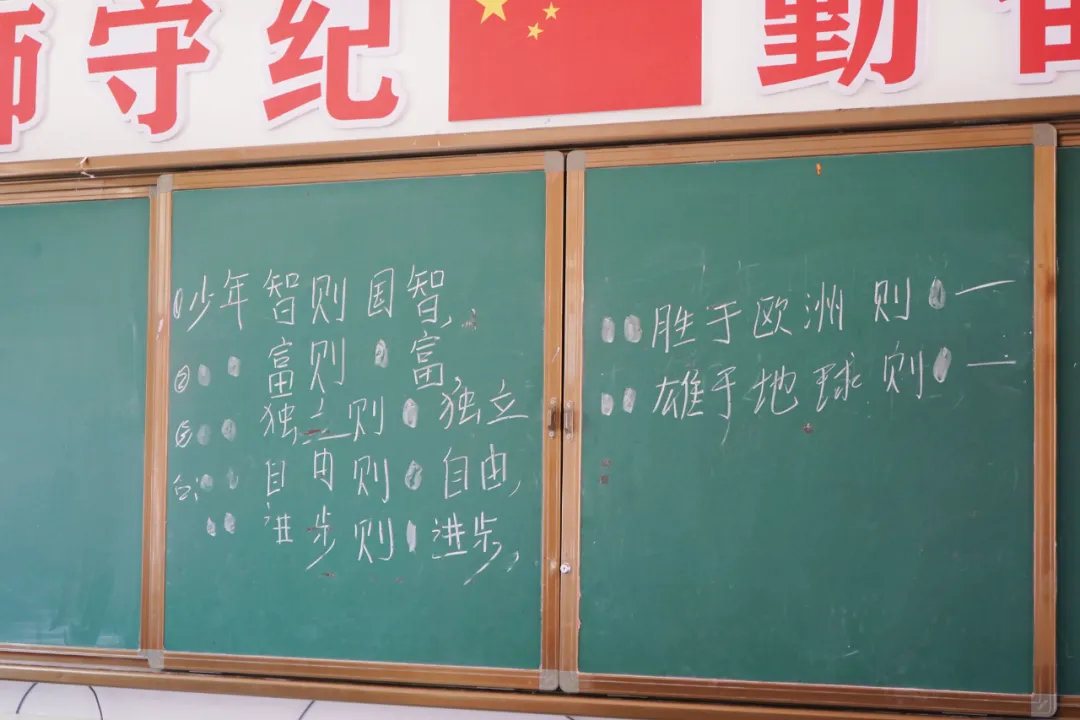 师守纪 勤奋
①少年智则国智,
② 富则 富,
③ 独立则 独立
④ 自由则 自由,
进步则 进步,
胜于欧洲则 一
雄于地球则 一